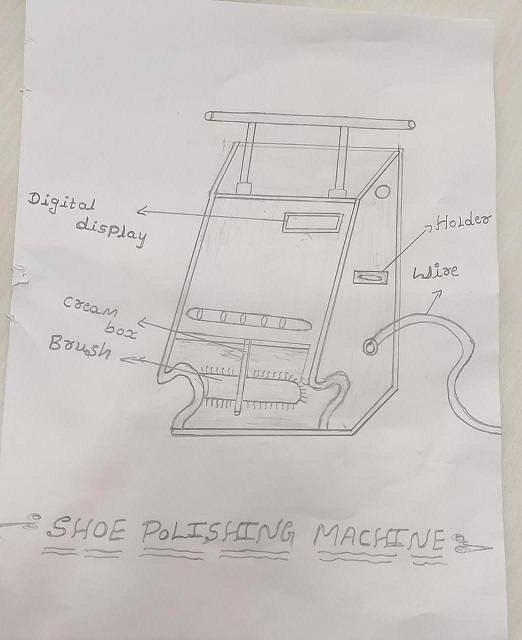 Digital
display
Holder
Wire
Cream
box
Brush
SHOE POLISHING MACHINE